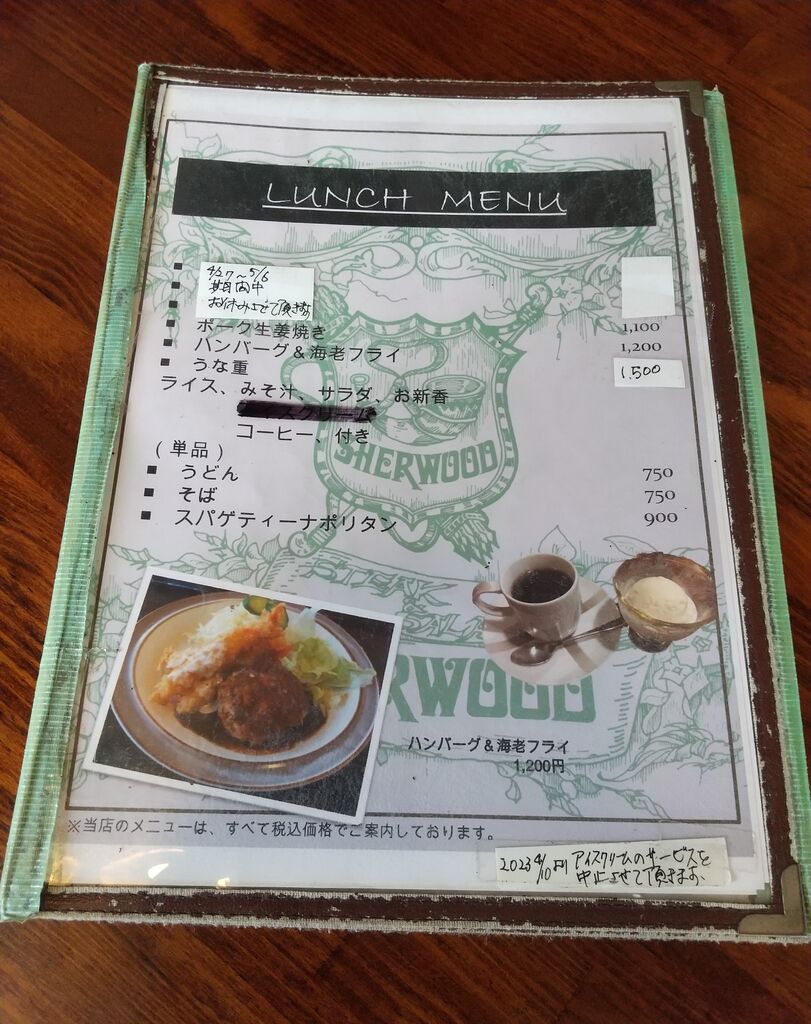 LUNCH MENU
■ 4/27〜5/6
■ 期間中
■ お休みさせて頂きます
■ ポーク生姜焼き 1,100
■ ハンバーグ&海老フライ 1,200
■ うな重 1,500
ライス、みそ汁、サラダ、お新香
アイスクリーム
コーヒー、付き
(単品)
■ うどん 750
■ そば 750
■ スパゲティーナポリタン 900
SHERWOOD
STEAK
&
RWOOD
ハンバーグ&海老フライ
1,200円
※当店のメニューは、すべて税込価格でご案内しております。
2023 4/10より アイスクリームのサービスを
中止させて頂きます。